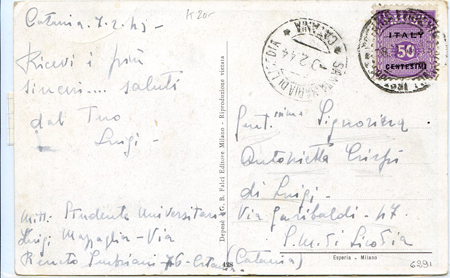 Catania. 7. 2. 44 -
K 20-
Ricevi i più
sinceri.... saluti
dal Tuo
Luigi -
Mitt. Studente Universitario
Luigi Via
Renato Catania.
Deposit. G. B. Falci Editore Milano - Riproduzione vietata
428
CATANIA
2.44
ITALY
50
CENTESIMI
Gent.ssima Signorina
Antonietta Crisafi
di Luigi -
Via Garibaldi - 47
S. M. di Licodia
(Catania)
Esperia - Milano
6291